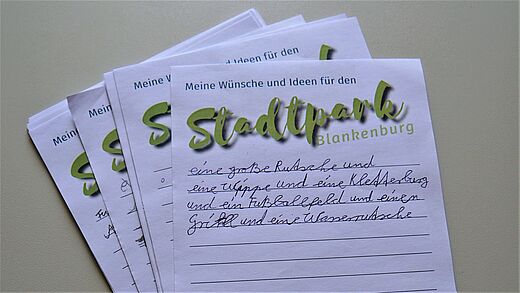 Meine Wünsche und Ideen für den
Stadtpark
Blankenburg
eine große Rutsche und
eine Wippe und eine Kletterburg
und ein Fußballfeld und einen
Grill und eine Wasserrutsche
Meine Wü
und Ideen für den
Meine W
Mein
Mein